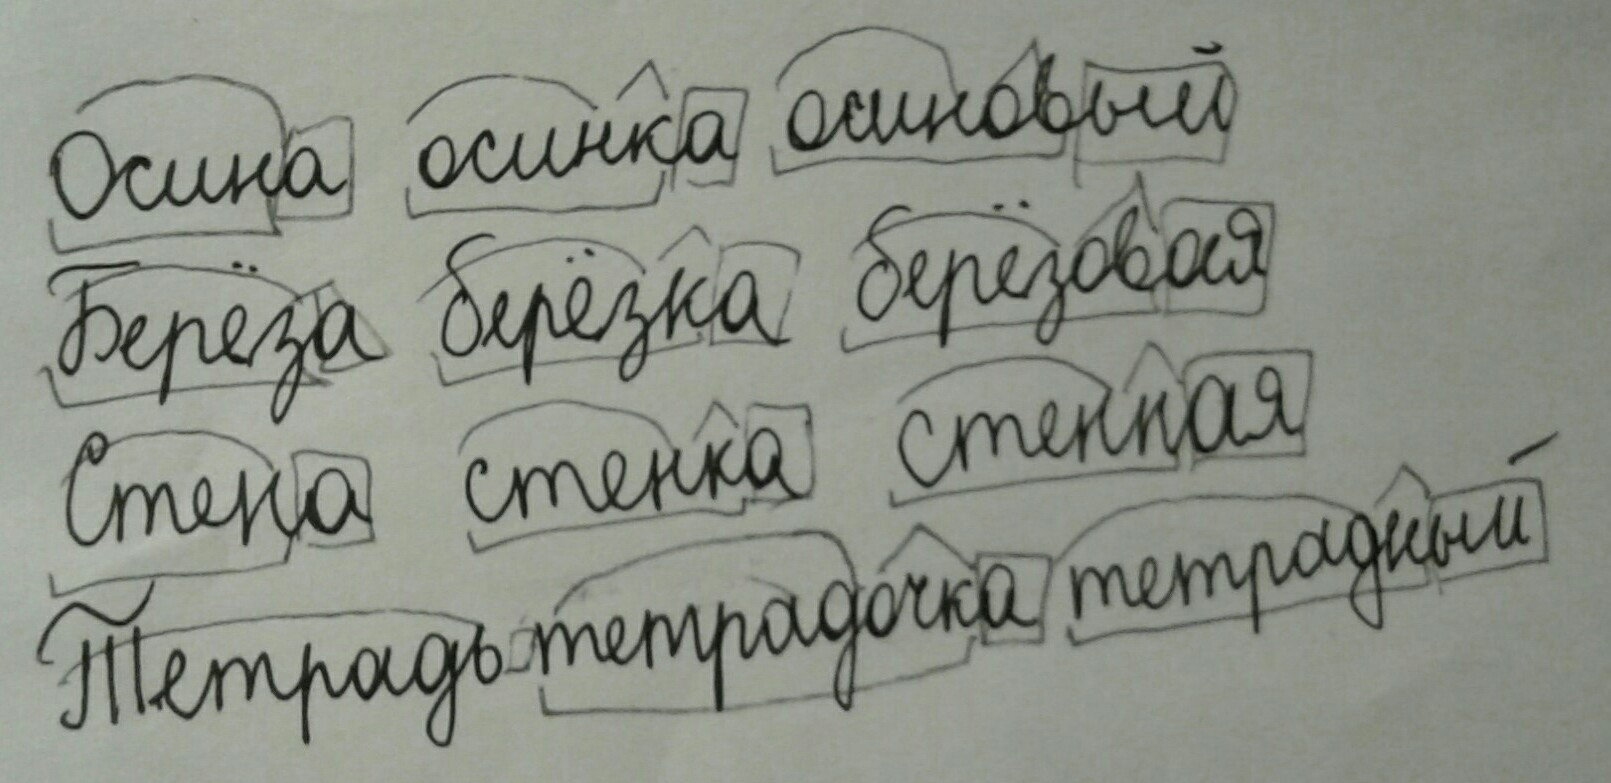 Осина осинка осиновый
Берёза берёзка берёзовая
Стена стенка стенная
Тетрадь тетрадочка тетрадный